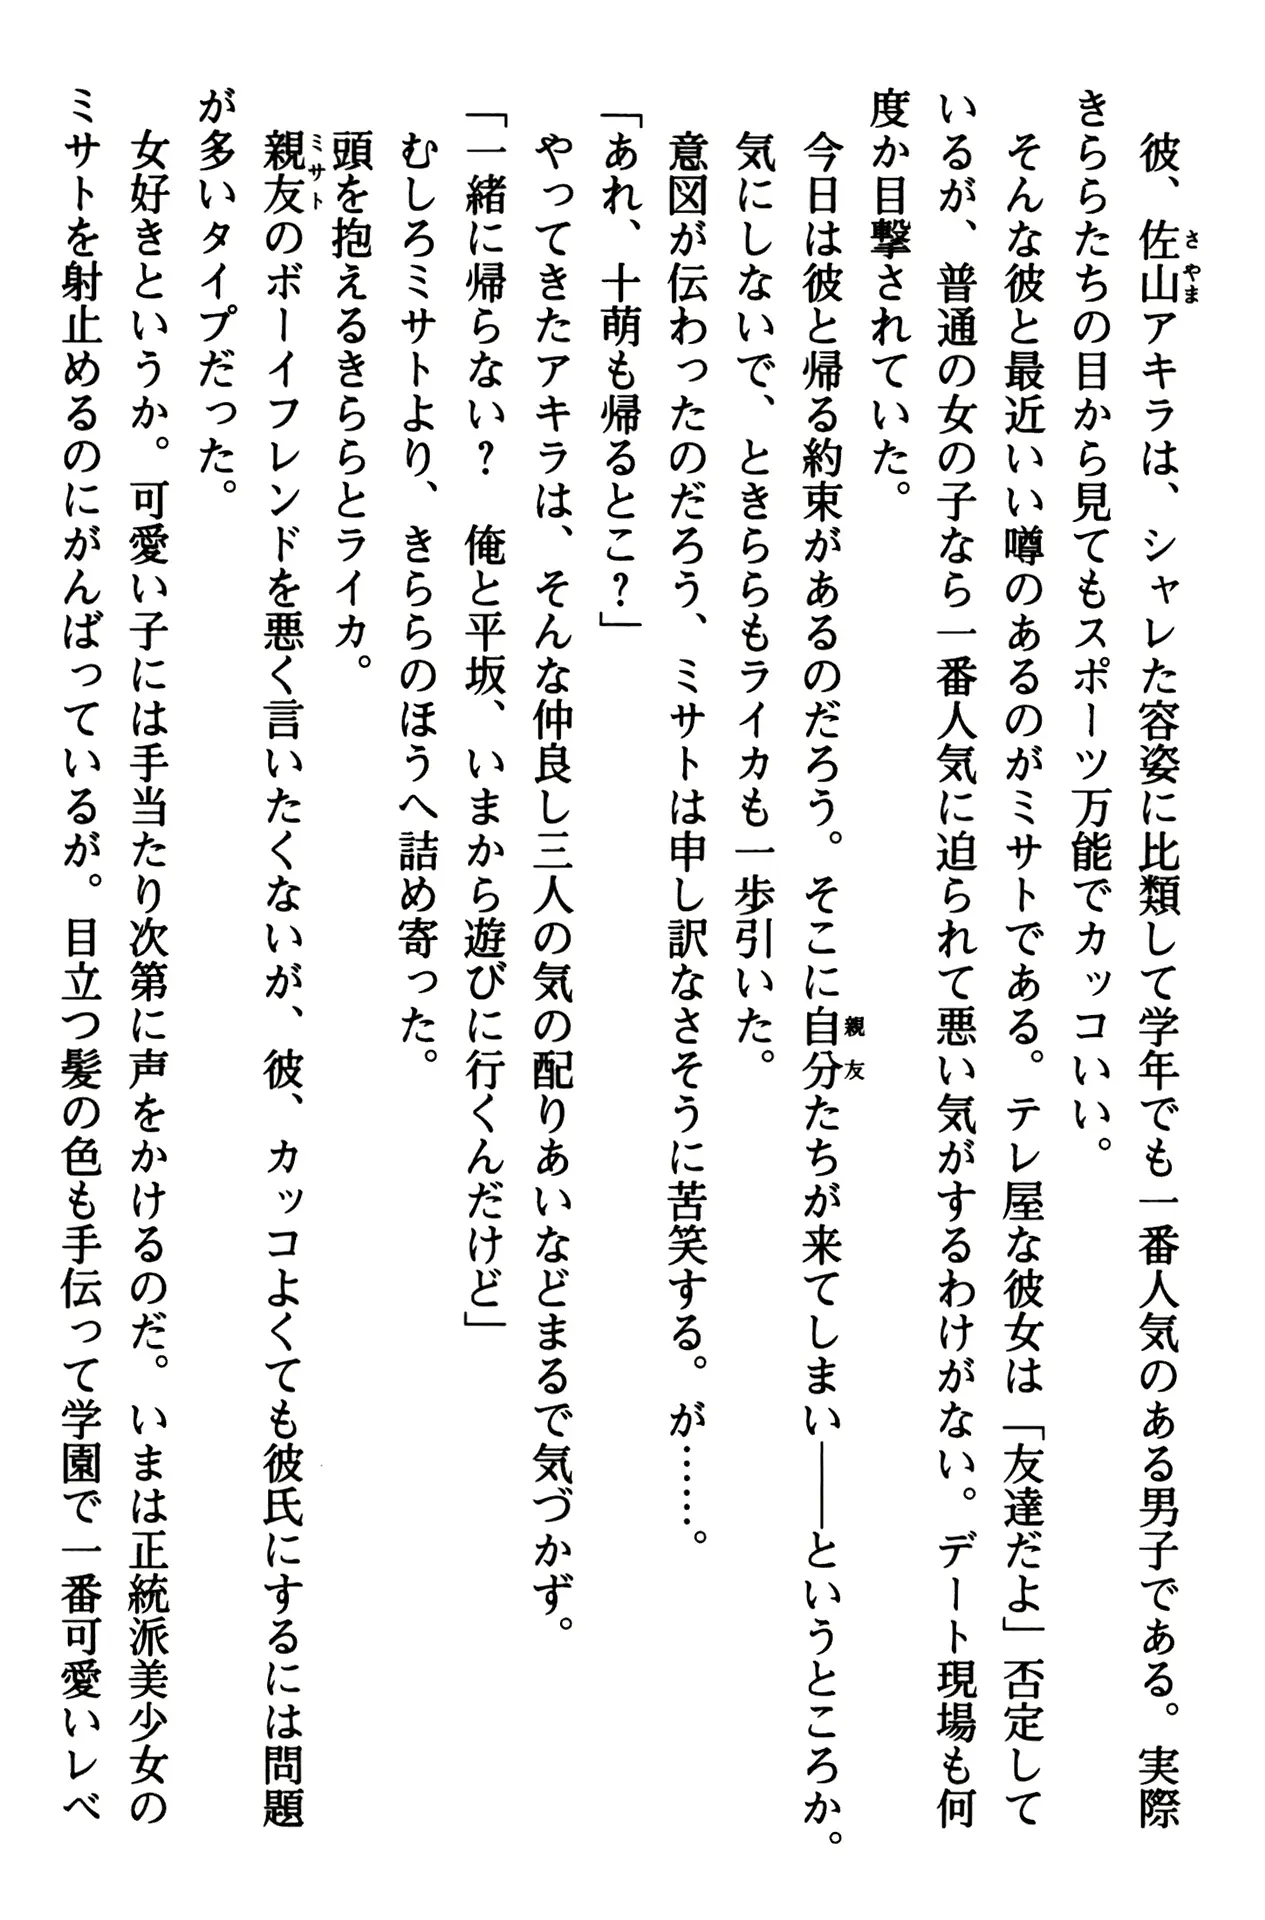 彼、佐山アキラは、シャレた容姿に比類して学年でも一番人気のある男子である。実際
きららたちの目から見てもスポーツ万能でカッコいい。
そんな彼と最近いい噂のあるのがミサトである。テレ屋な彼女は「友達だよ」否定して
いるが、普通の女の子なら一番人気に迫られて悪い気がするわけがない。デート現場も何
度か目撃されていた。
今日は彼と帰る約束があるのだろう。そこに自分たちが来てしまい――というところか。
気にしないで、ときららもライカも一歩引いた。
意図が伝わったのだろう、ミサトは申し訳なさそうに苦笑する。が……。
「あれ、十萌も帰るとこ？」
やってきたアキラは、そんな仲良し三人の気の配りあいなどまるで気づかず。
「一緒に帰らない？　俺と平坂、いまから遊びに行くんだけど」
むしろミサトより、きららのほうへ詰め寄った。
頭を抱えるきららとライカ。
親友のボーイフレンドを悪く言いたくないが、彼、カッコよくても彼氏にするには問題
が多いタイプだった。
女好きというか。可愛い子には手当たり次第に声をかけるのだ。いまは正統派美少女の
ミサトを射止めるのにがんばっているが。目立つ髪の色も手伝って学園で一番可愛いレベ
さやま
親友
ミサト